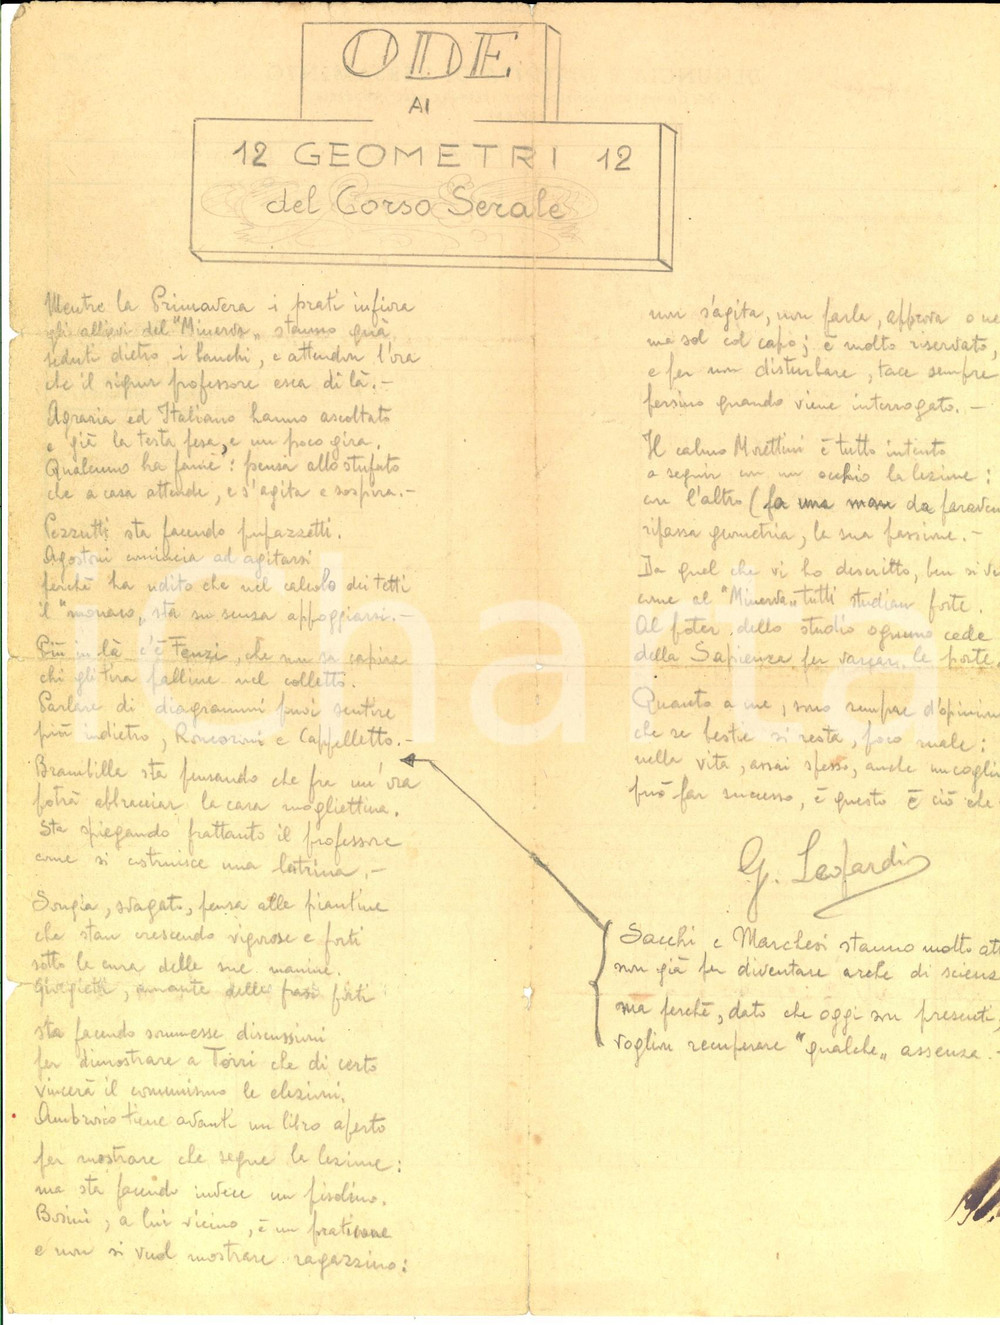 ODE
AI
12 GEOMETRI 12
del Corso Serale
Mentre la Primavera i prati infiora
gli allievi del "Minerva„ stanno quà,
seduti dietro i banchi, e attendon l'ora
che il signor professore esca di là.-
Agraria ed Italiano hanno ascoltato
e già la testa pesa, e un poco gira.
Qualcuno ha fame: pensa allo stufato
che a casa attende, e s'agita e sospira.-
Pezzutti sta facendo pupazzetti.
Agostoni comincia ad agitarsi
perchè ha udito che nel calcolo dei tetti
il "monaco„ sta su senza appoggiarsi.-
Più in là c'è Fenzi, che non sa capire
chi gli tira palline nel colletto.
Parlare di diagrammi puoi sentire
più indietro, Roncoroni e Cappelletto.-
Brambilla sta pensando che fra un'ora
potrà abbracciar la cara mogliettina.
Sta spiegando frattanto il professore
come si costruisce una latrina.-
Songia, svagato, pensa alle piantine
che stan crescendo vigorose e forti
sotto le cura delle sue manine.
Giorgietti, amante delle frasi forti
sta facendo sommesse discussioni
per dimostrare a Torri che di certo
vincerà il comunismo le elezioni.
Ambrosio tiene avanti un libro aperto
per mostrare che segue la lezione:
ma sta facendo invece un pisolino.
Bosini, a lui vicino, è un
e non si vuol mostrare ragazzino:
non s'agita, non parla, approva o ne
ma sol col capo; è molto riservato,
e per non disturbare, tace sempre
persino quando viene interrogato.-
Il calmo Morettini è tutto intento
a seguir con un occhio la lezione:
con l'altro (fa una man da paraven
ripassa geometria, la sua passione.-
Da quel che vi ho descritto, ben si ve
come al "Minerva„ tutti studian forte.
Al poter dello studio ognuno cede
della Sapienza per varcar le porte.
Quanto a me, sono sempre d'opinion
che se bestie si resta, poco male:
nella vita, assai spesso, anche un coglio
può far successo, e questo è ciò che
G. Leopardi
Sacchi e Marchesi stanno molto att
non già per diventare arche di scienz
ma perchè, dato che oggi son presenti,
voglion recuperare "qualche„ assenza.-
icharta